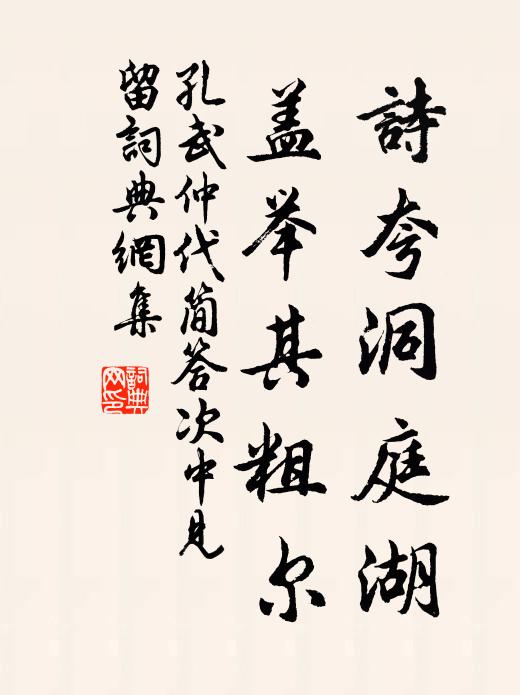 詩夸洞庭湖
盖举其粗尔
孔武仲代简答次中見
留詞典網集
詞典網印